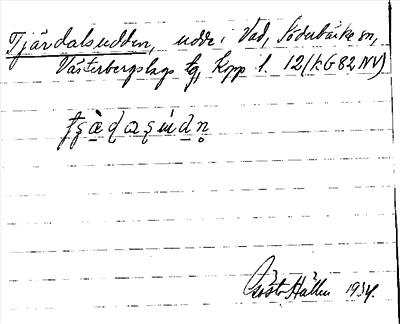 Tjärdalsudden, udde i Vad, Söderbärke sn,
Västerbergslags tg, Kopp l. 12 (KG82NV)
Gösta Hållén 1934.